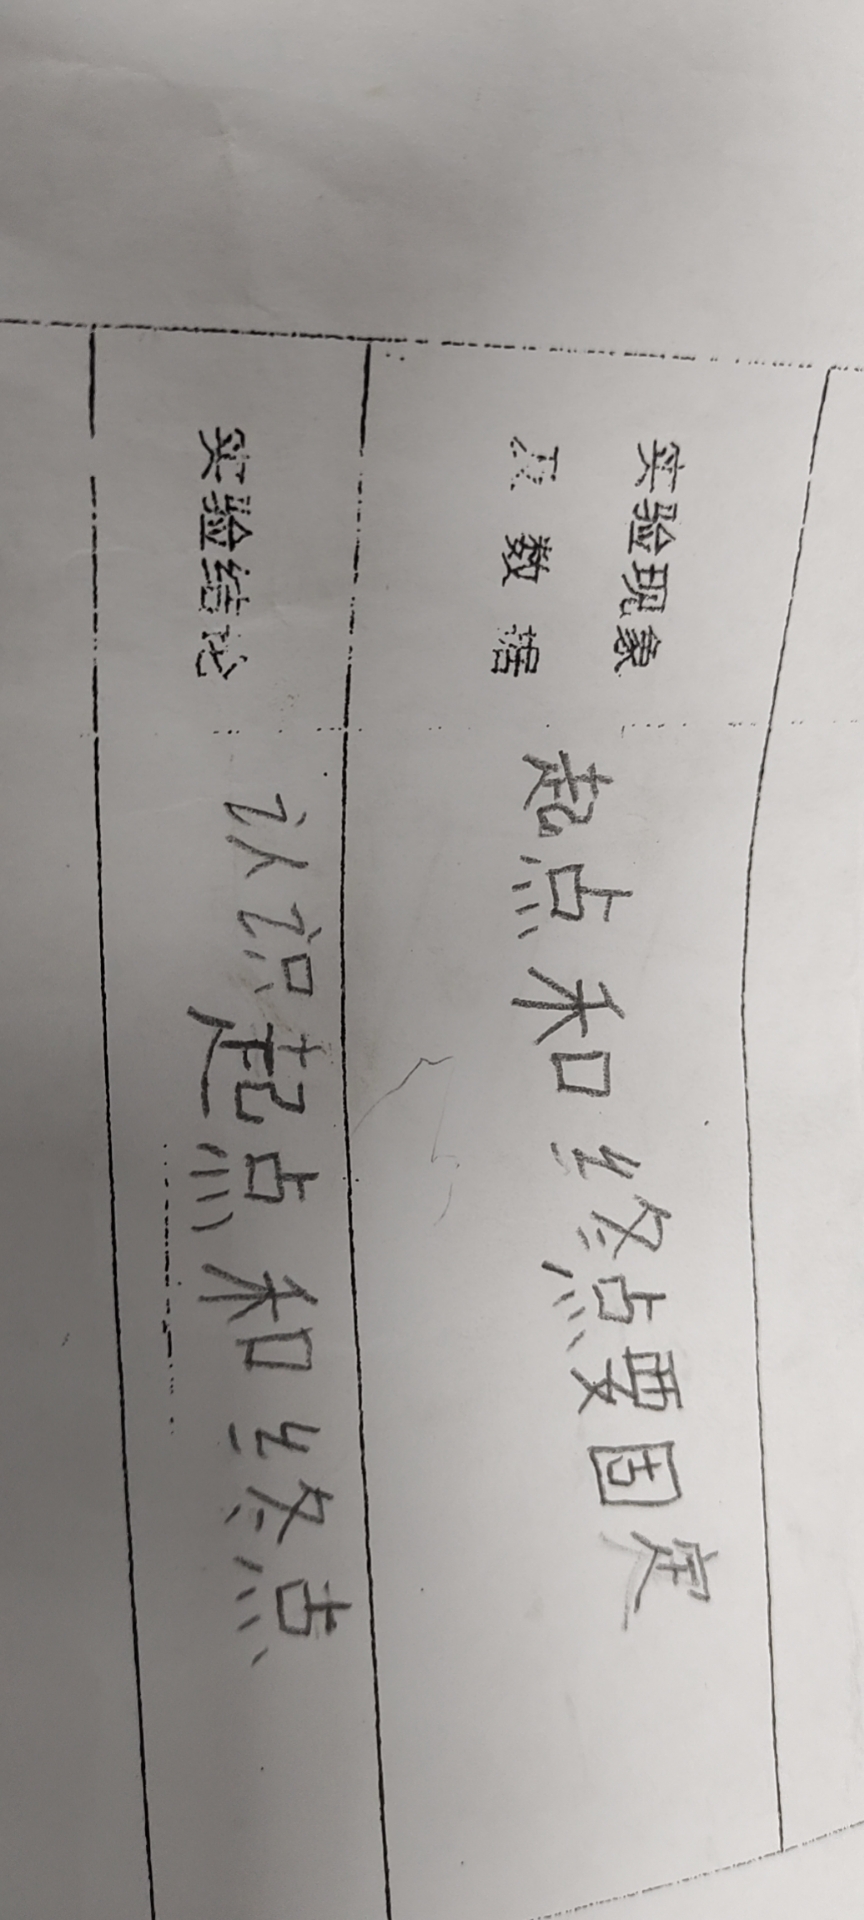 实验现象
及数据
起点和终点要固定
实验结论
认识起点和终点